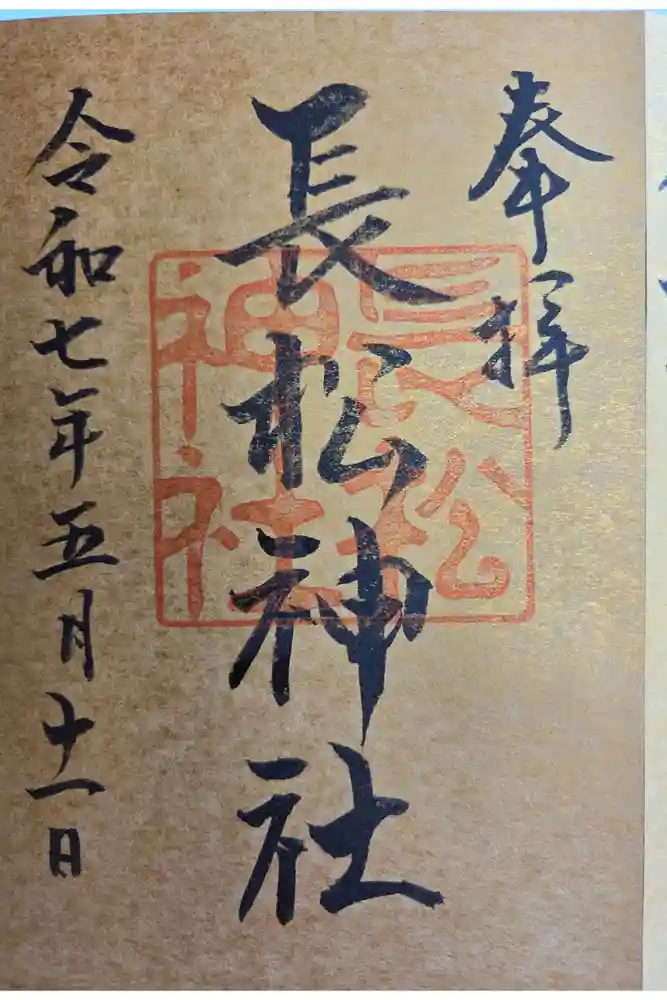 奉拝
長松神社
長松
神社
令和七年五月十一日